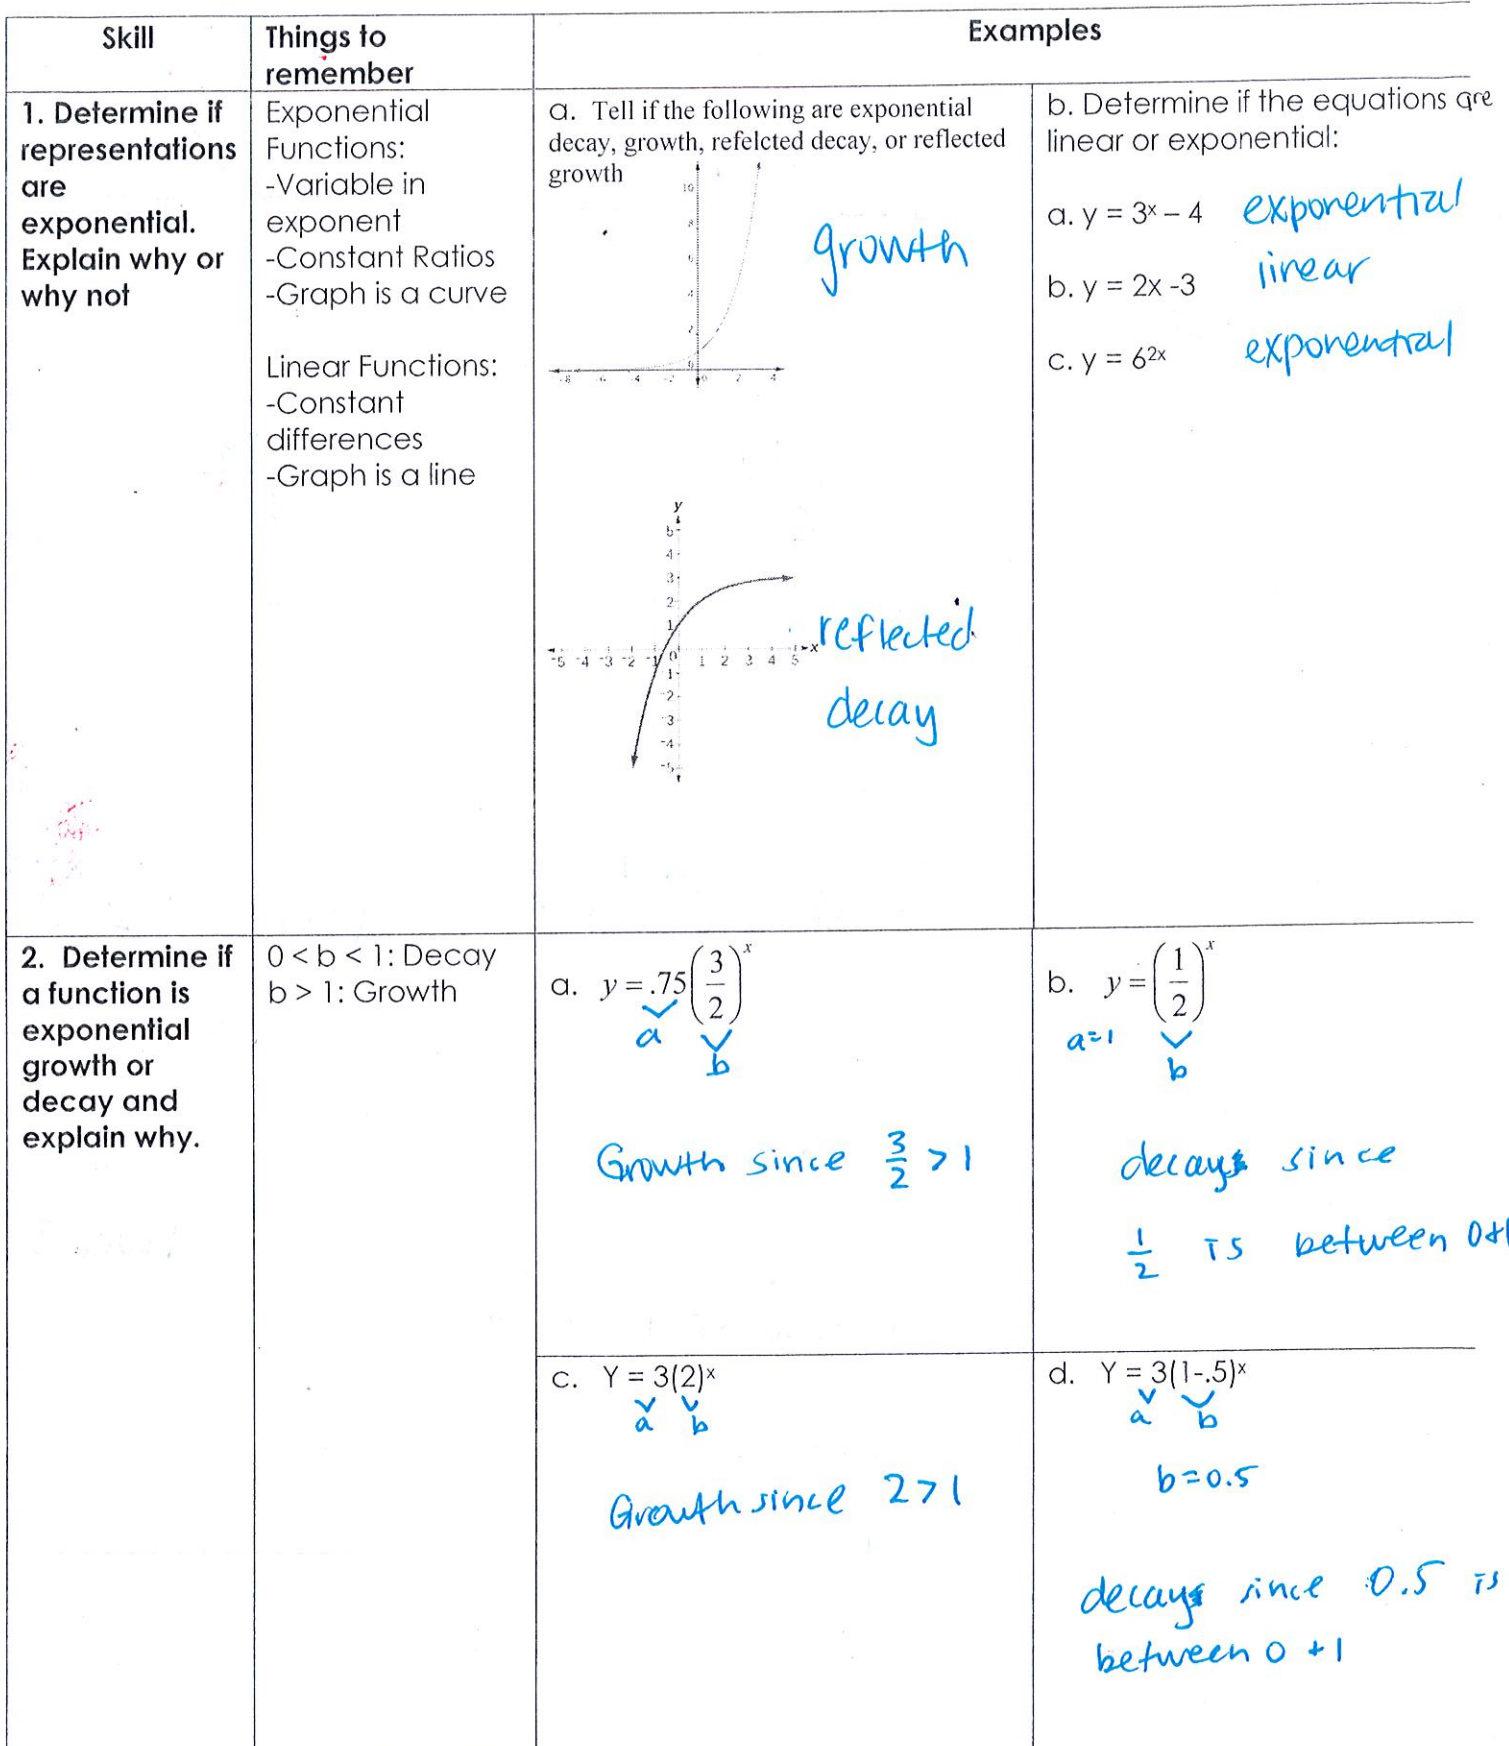 Skill
Things to
remember
Examples
1. Determine if
representations
are
exponential.
Explain why or
why not
Exponential
Functions:
-Variable in
exponent
-Constant Ratios
-Graph is a curve
Linear Functions:
-Constant
differences
-Graph is a line
a. Tell if the following are exponential
decay, growth, refelcted decay, or reflected
growth
10
8
6
4
2
0
-8 -6 -4 -2 0 2 4
growth
y
5
4
3
2
1
-5 -4 -3 -2 -1 0 1 2 3 4 5 x
1
-2
-3
-4
-5
reflected
decay
b. Determine if the equations are
linear or exponential:
a. y = 3ˣ – 4 exponential
b. y = 2x -3 linear
c. y = 6²ˣ exponential
2. Determine if
a function is
exponential
growth or
decay and
explain why.
0 < b < 1: Decay
b > 1: Growth
a. y = .75(3/2)ˣ
a b
Growth since 3/2 > 1
b. y = (1/2)ˣ
a=1 b
decay since
1/2 is between 0+1
c. Y = 3(2)ˣ
a b
Growth since 2>1
d. Y = 3(1-.5)ˣ
a b
b=0.5
decay since 0.5 is
between 0 + 1